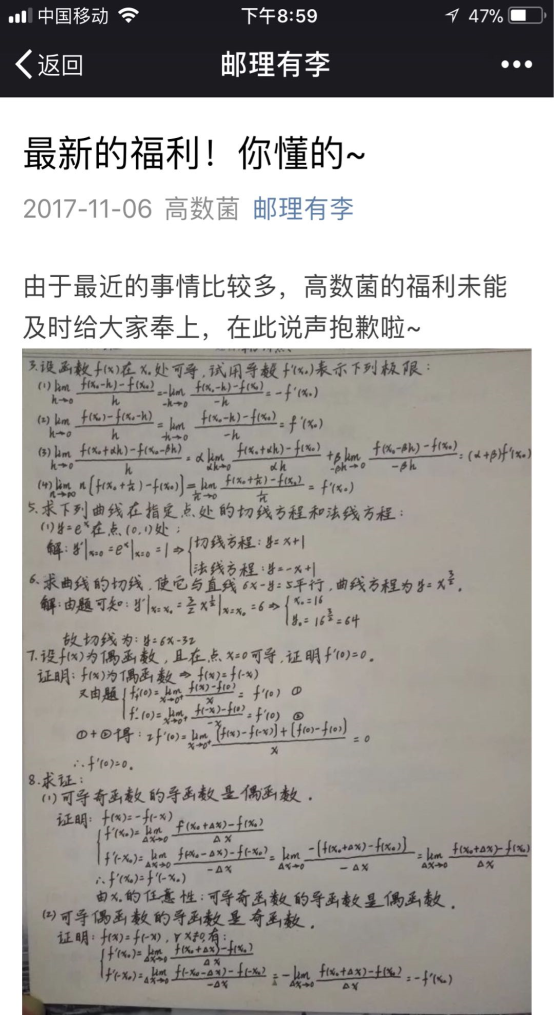 中国移动 下午8:59 47%
返回 邮理有李
最新的福利！你懂的~
2017-11-06 高数菌 邮理有李
由于最近的事情比较多，高数菌的福利未能
及时给大家奉上，在此说声抱歉啦~
3.设函数f(x)在x₀处可导,试用导数f'(x₀)表示下列极限:
(1) lim_{h→0} (f(x₀-h)-f(x₀))/h = -lim_{-h→0} (f(x₀-h)-f(x₀))/(-h) = -f'(x₀)
(2) lim_{h→0} (f(x₀)-f(x₀-h))/h = lim_{h→0} (f(x₀-h)-f(x₀))/(-h) = f'(x₀)
(3) lim_{h→0} (f(x₀+αh)-f(x₀-βh))/h = α lim_{αh→0} (f(x₀+αh)-f(x₀))/(αh) + β lim_{-βh→0} (f(x₀-βh)-f(x₀))/(-βh) = (α+β)f'(x₀)
(4) lim_{n→∞} n[f(x₀+1/n)-f(x₀)] = lim_{1/n→0} (f(x₀+1/n)-f(x₀))/(1/n) = f'(x₀)
5.求下列曲线在指定点处的切线方程和法线方程:
(1) y=eˣ在点(0,1)处:
解: y'|x=0 = eˣ|x=0 = 1 ⇒ { 切线方程: y=x+1
法线方程: y=-x+1
6.求曲线的切线,使它与直线6x-y=5平行,曲线方程为y=x^{3/2}.
解:由题可知: y'|x=x₀ = 3/2 x^{1/2}|x=x₀ = 6 ⇒ { x₀=16
y₀=16^{3/2}=64
故切线为: y=6x-32
7.设f(x)为偶函数,且在点x=0可导,证明f'(0)=0。
证明: f(x)为偶函数 ⇒ f(x)=f(-x)
又由题 { f'₊(0)=lim_{x→0⁺} (f(x)-f(0))/x = f'(0) ①
f'₋(0)=lim_{x→0⁺} (f(-x)-f(0))/(-x) = f'(0) ②
①+②得: 2f'(0)=lim_{x→0⁺} ([f(x)-f(-x)]+[f(0)-f(0)])/x = 0
∴f'(0)=0。
8.求证:
(1)可导奇函数的导函数是偶函数.
证明: f(x)=-f(-x)
{ f'(x₀)=lim_{Δx→0} (f(x₀+Δx)-f(x₀))/Δx
f'(-x₀)=lim_{Δx→0} (f(-x₀-Δx)-f(-x₀))/(-Δx) = lim_{Δx→0} (-[f(x₀+Δx)-f(x₀)])/(-Δx) = lim_{Δx→0} (f(x₀+Δx)-f(x₀))/Δx
∴f'(x₀)=f'(-x₀)
由x₀的任意性:可导奇函数的导函数是偶函数.
(2)可导偶函数的导函数是奇函数.
证明: f(x)=f(-x), ∀x≠0,有:
{ f'(x₀)=lim_{Δx→0} (f(x₀+Δx)-f(x₀))/Δx
f'(-x₀)=lim_{Δx→0} (f(-x₀-Δx)-f(-x₀))/(-Δx) = -lim_{Δx→0} (f(x₀+Δx)-f(x₀))/Δx = -f'(x₀)